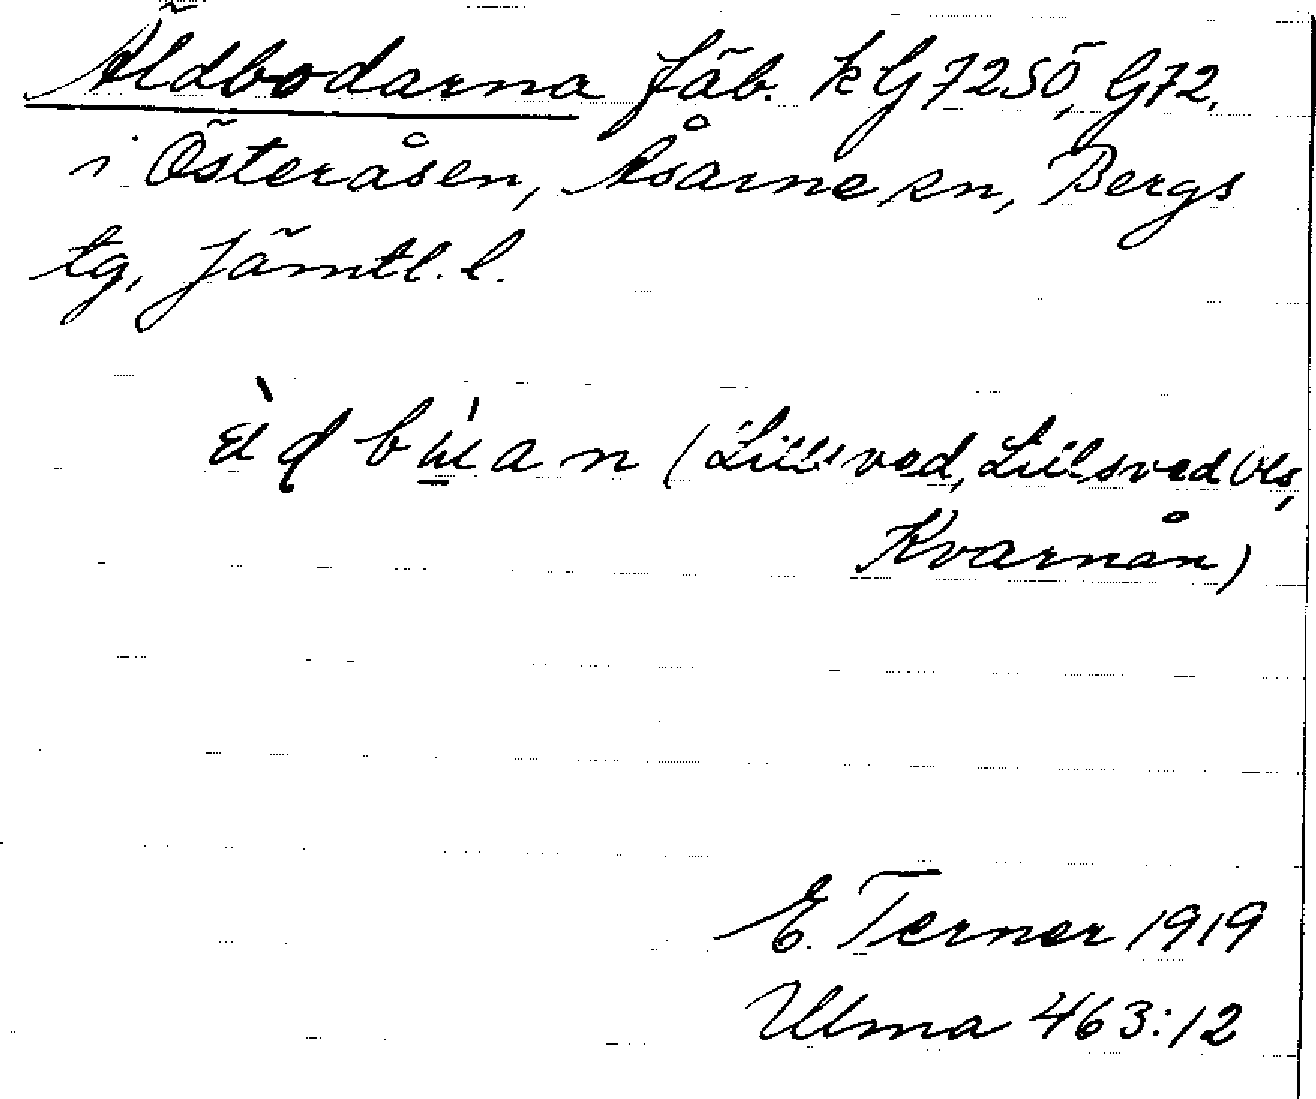 Äldbodarna fäb. k G 7250, G72,
i Österåsen, Åsarne sn, Bergs
tg, Jämtl. l.
(Lillsved, Lillsved Ols,
Kvarnån)
E. Terner 1919
Ulma 463:12